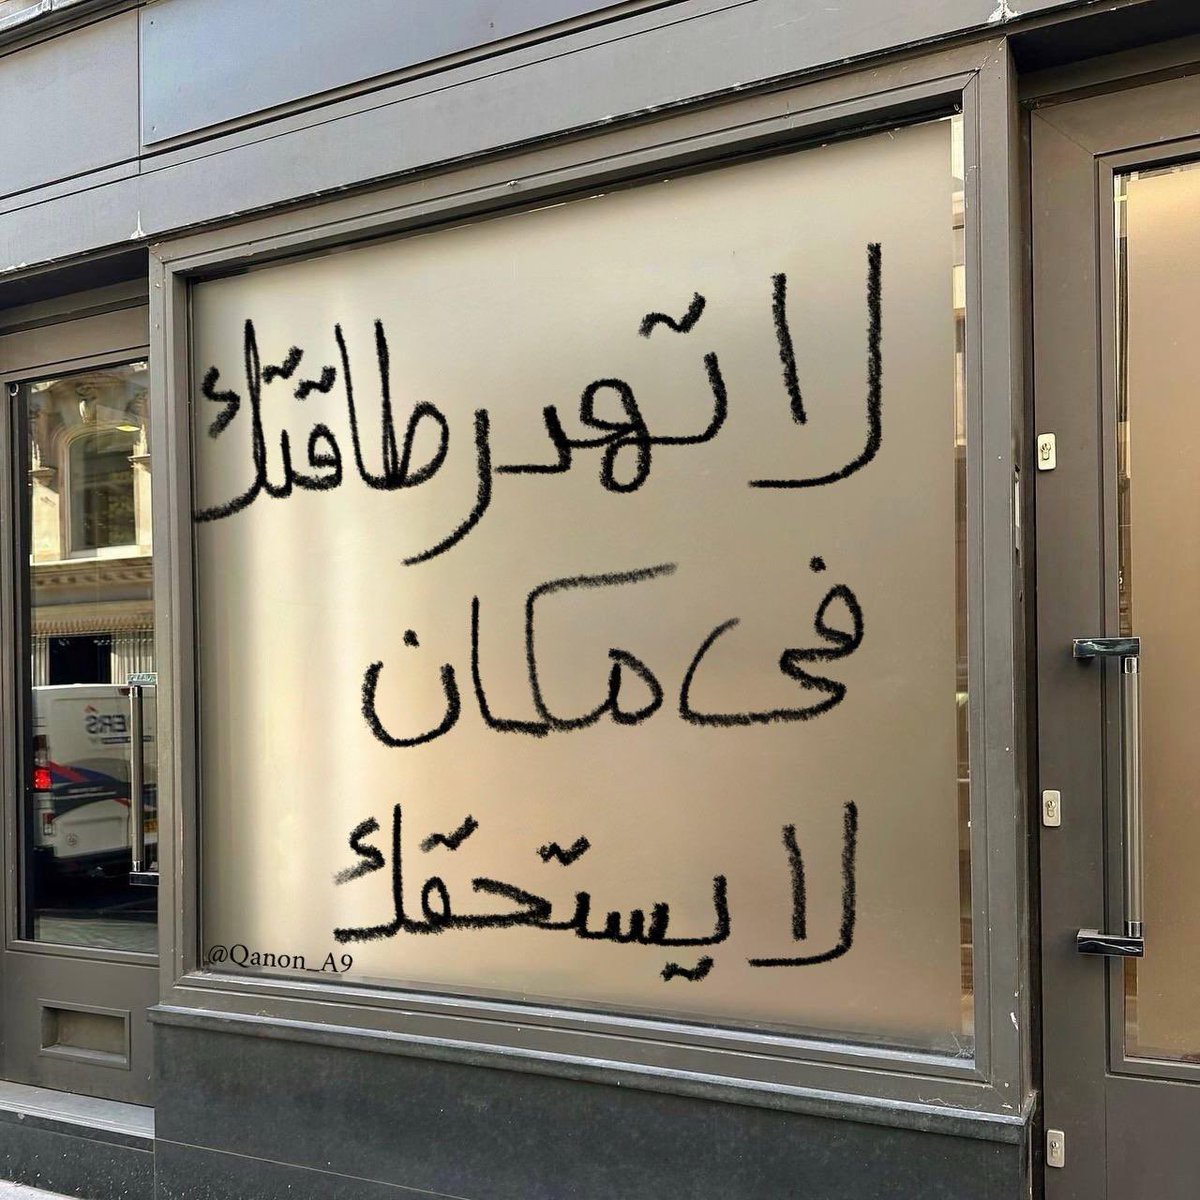 لا تهدر طاقتك
فى مكان
لا يستحقك
@Qanon_A9